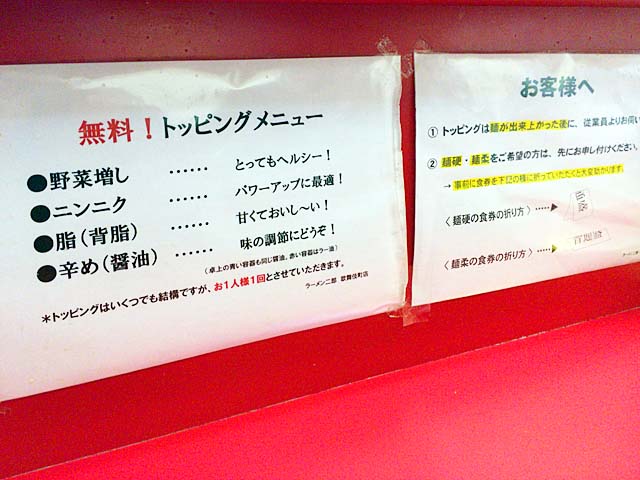 無料！トッピングメニュー
●野菜増し ‥‥‥ とってもヘルシー！
●ニンニク ‥‥‥ パワーアップに最適！
●脂（背脂） ‥‥‥ 甘くておいし～い！
●辛め（醤油） ‥‥‥ 味の調節にどうぞ！
（卓上の青い容器も同じ醤油、赤い容器はラー油）
＊トッピングはいくつでも結構ですが、お1人様1回とさせていただきます。
ラーメン二郎 歌舞伎町店
お客様へ
① トッピングは麺が出来上がった後に、従業員よりお伺い
② 麺硬・麺柔をご希望の方は、先にお申し付けください。
→ 事前に食券を下記の様に折っていただくと大変助かります。
〈 麺硬の食券の折り方 〉
〈 麺柔の食券の折り方 〉
ラーメン二郎